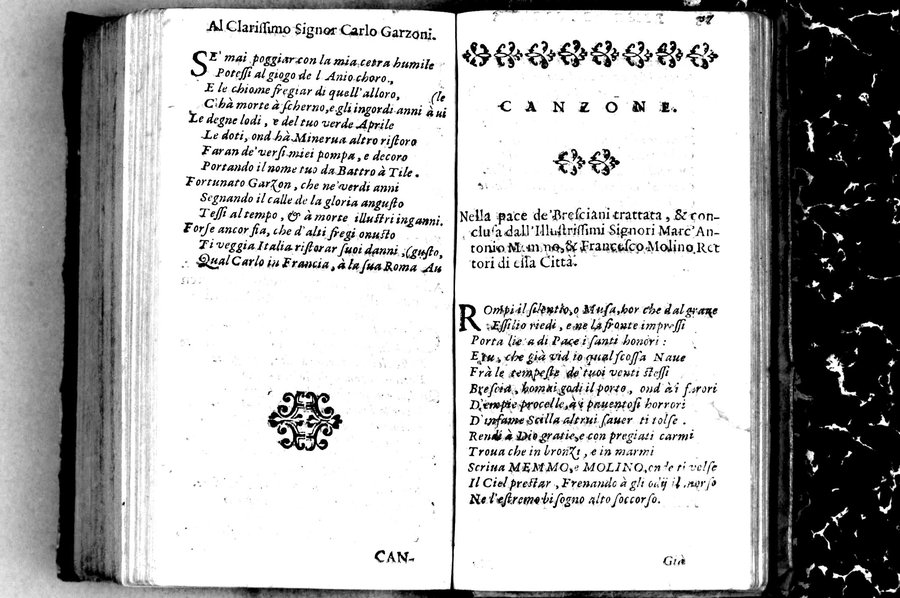 Al Clarissimo Signor Carlo Garzoni.
SE' mai poggiar con la mia cetra humile
Potessi al giogo de l Anio choro,
E le chiome fregiar di quell'alloro,
C'hà morte à scherno, e gli ingordi anni à ui (le
Le degne lodi, e del tuo verde Aprile
Le doti, ond hà Minerua altro ristoro
Faran de' versi miei pompa, e decoro
Portando il nome tuo da Battro à Tile.
Fortunato Garzon, che ne' verdi anni
Segnando il calle de la gloria angusto
Tessi al tempo, & à morte illustri inganni.
Forse ancor fia, che d'alti fregi onusto
Ti veggia Italia ristorar suoi danni, (gusto,
Qual Carlo in Francia, à la sua Roma Au
CAN-
CANZONE.
Nella pace de' Bresciani trattata, & con-
clusa dall'Illustrissimi Signori Marc'An-
tonio Memmo, & Francesco Molino Ret
tori di essa Città.
ROmpi il silentio, o Musa, hor che dal graue
Essilio riedi, e ne la fronte impressi
Porta lieta di Pace i santi honori:
E tu, che già vid io qual scossa Naue
Frà le tempeste de' tuoi venti stessi
Brescia, homai godi il porto, ond à i furori
D'empie procelle, à i pauentosi horrori
D'infame Scilla altrui sauer ti tolse.
Rendi à Dio gratie, e con pregiati carmi
Troua che in bronzi, e in marmi
Scriua MEMMO, e MOLINO, onde ti volse
Il Ciel prestar, Frenando à gli odij il morso
Ne l'estremo bisogno alto soccorso.
Già